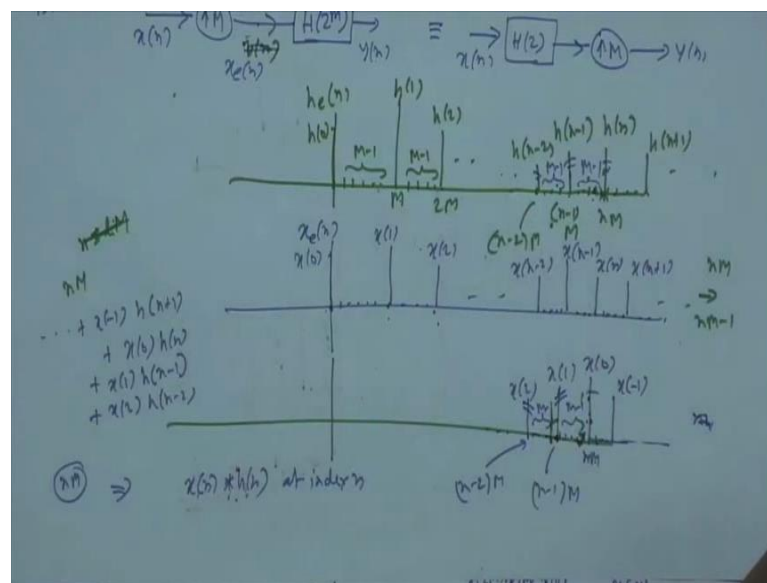 x(n) ↑M H(z^M) y(n) ≡ x(n) H(z) ↑M y(n)
x_e(n)
h_e(n) h(1) h(2) h(n-2) h(n-1) h(n) h(n+1)
h(0)
M-1 M-1 .. M-1 M-1
M 2M (n-2)M (n-1)M nM
x_e(n) x(1) x(2) x(n-2) x(n-1) x(n) x(n+1)
x(0)
nM
nM → nM-1
... + x(-1) h(n+1)
+ x(0) h(n)
+ x(1) h(n-1)
+ x(2) h(n-2)
x(2) x(1) x(0) x(-1)
M-1 M-1
nM
(n-2)M (n-1)M
nM ⇒ x(n) * h(n) at index n